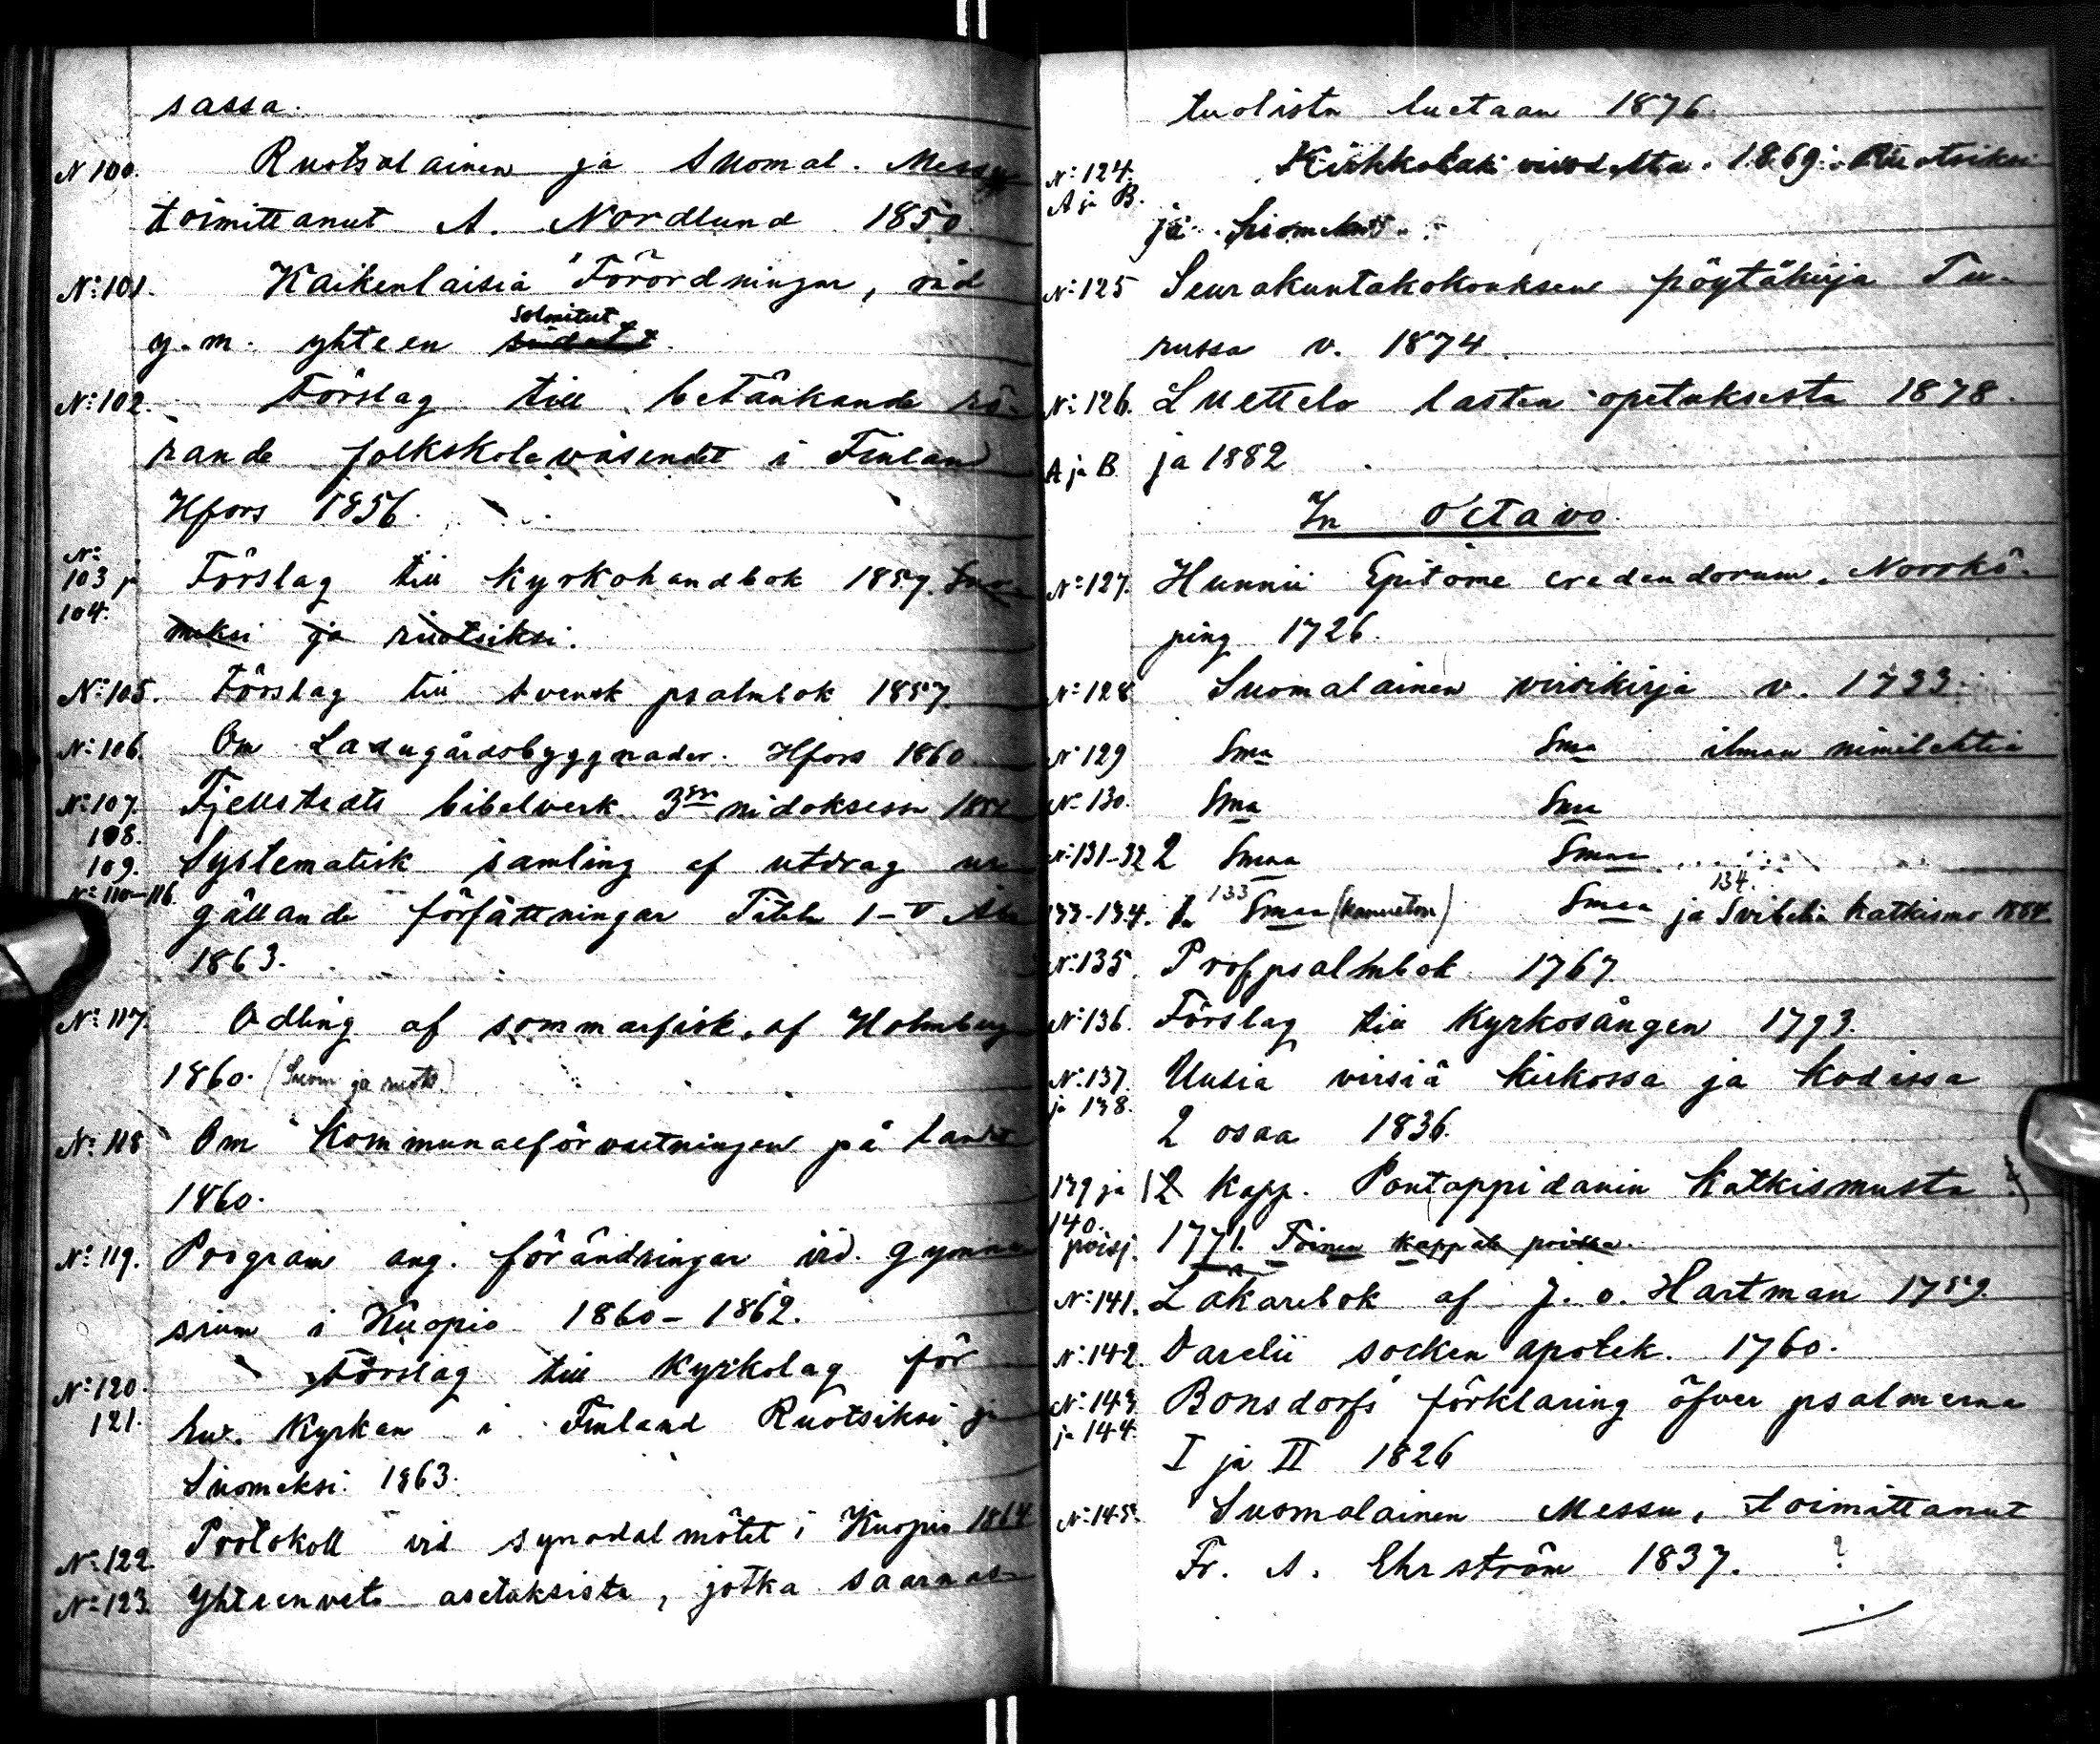 sassa.
N 100. Ruotsalainen ja Suomal. Messu
toimittanut A. Nordlund 1850.
N:101. Kaikenlaisia Förordningar, råd
y.m. yhteen solmitut
N:102. Förslag till betänkande rö-
rande folkskolewäsendet i Finland
Hfors 1856.
N:
103 ja Förslag till Kyrkohandbok 1859. Suo-
104.
meksi ja ruotsiksi.
N:105. Förslag till svensk psalmbok 1857.
N:106. Om Ladugårdsbyggnader. Hfors 1860.
N:107. Fjellstedts bibelverk 3:ssa nidoksessa
108.
109. Systematisk samling af utdrag ur
N:110–116.
gällande författningar Titeln I–V Åbo
1863.
N:117. Odling af sommarfisk, af Holmberg
1860. (Suom ja ruots)
N:118 Om Kommunalförvaltningen på landet
1860.
N:119. Program ang. förändringar vid gymna-
sium i Kuopio 1860–1862.
N:120. Förslag till Kyrkolag för
121. luv. Kyrkan i Finland Ruotsiksi ja
Suomeksi 1863.
N:122. Protokoll vid synodalmötet i Kuopio 1864
N:123. Yhteenveto asetuksista, jotka saarnas-
tuolista luetaan 1876.
N:124. Kirkkolaki vuodelta 1869. Ruotsiksi
A ja B.
ja Suomeksi.
N:125 Seurakuntakokouksen pöytäkirja Tu-
russa v. 1874.
N:126. Luettelo lasten opetuksesta 1878.
A ja B ja 1882
In Octavo.
N:127. Hunnii Epitome credendorum. Norrkö-
ping 1726.
N:128 Suomalainen virsikirja v. 1733.
N:129 Sma Sma ilman nimilehtiä
N:130. Sma Sma
N:131-32 2 Smaa Smaa
133-134. 133 Smaa (kanneton) Smaa 134. ja Svibelin Katkismo 1884
N:135. Profpsalmbok 1767.
N:136. Förslag till Kyrkosången 1793.
N:137. Uusia virsiä kirkossa ja kodissa
ja 138.
2 osaa 1836.
139 ja 2 kapp. Pontoppidanin Katkismusta
140.
poisj. 1771. Toinen kappale poissa.
N:141. Läkarebok af J. o. Hartman 1759.
N:142. Darelii socken apotek. 1760.
N:143. Bonsdorfs förklaring öfver psalmerna
ja 144.
I ja II 1826
N:145. Suomalainen Messu, toimittanut
Fr. A. Ehrström 1837. ?